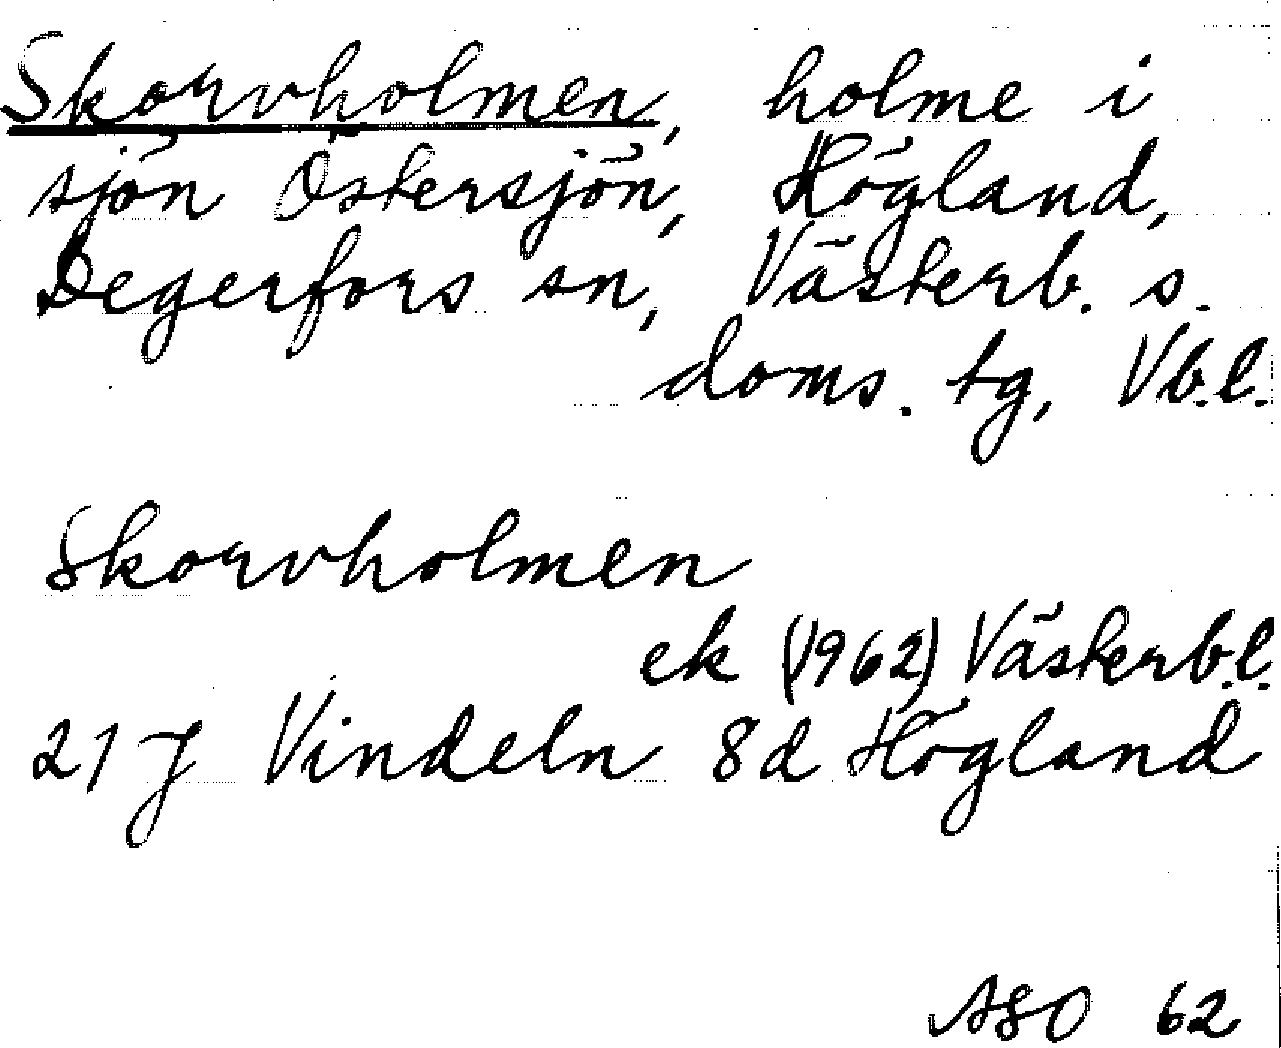 Skorvholmen, holme i
sjön Östersjön, Högland,
Degerfors sn, Västerb. s.
doms. tg, Vb.l.
Skorvholmen
ek (1962) Västerb.l.
21 J Vindeln 8d Högland
ASO 62